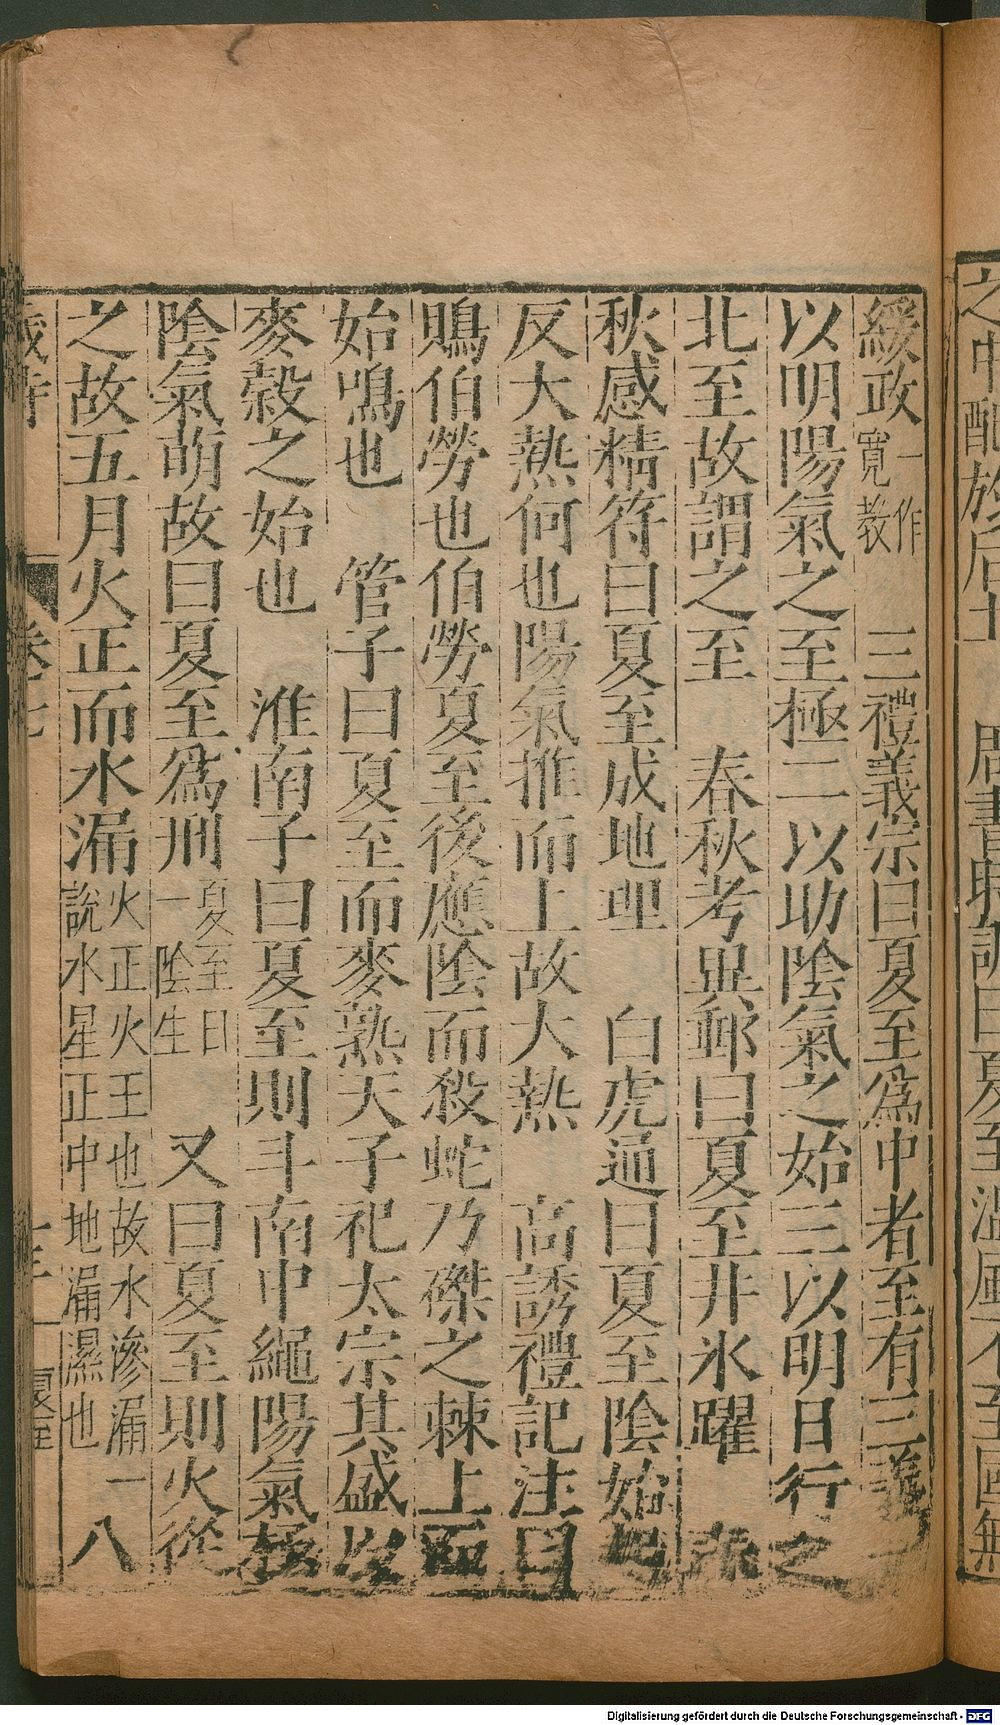 緩政一作寬教　三禮義宗曰夏至爲中者至有三義一
以明陽氣之至極二以助陰氣之始三以明日行之
北至故謂之至　春秋考異郵曰夏至井水躍　春
秋感精符曰夏至成地理　白虎通曰夏至陰始起
反大熱何也陽氣推而上故大熱　高誘禮記注曰
鵙伯勞也伯勞夏至後應陰而殺蛇乃磔之棘上而
始鳴也　管子曰夏至而麥熟天子祀太宗其盛以
麥穀之始也　淮南子曰夏至則斗南中繩陽氣極
陰氣萌故曰夏至爲刑夏至日一陰生　又曰夏至則火從
之故五月火正而水漏火正火王也故水滲漏一說水星正中地漏濕也　八
歲時　卷七　夏至
之中配於后土　周書時訓曰夏至溫風不至國無
Digitalisierung gefördert durch die Deutsche Forschungsgemeinschaft - DFG